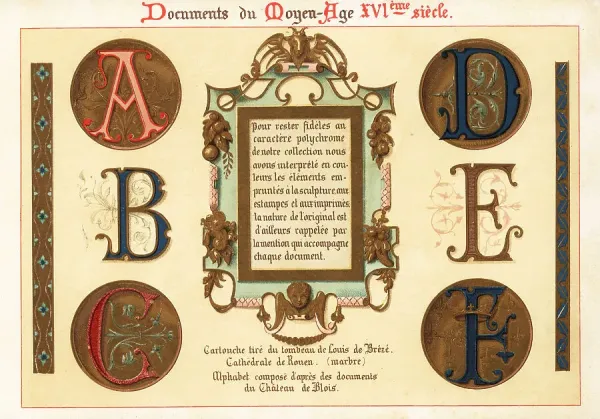 Documents du Moyen-Age XVIème siècle.
A
D
pour rester fidèles au
caractère polychrome
de notre collection nous
avons interprété en cou-
leurs les éléments em-
pruntés à la sculpture, aux
estampes et aux imprimés,
la nature de l'original est
d'ailleurs rappelée par
la mention qui accompagne
chaque document.
B
E
C
F
Cartouche tiré du tombeau de Louis de Brézé.
Cathédrale de Rouen. (marbre)
Alphabet composé d'après des documents
du Château de Blois.